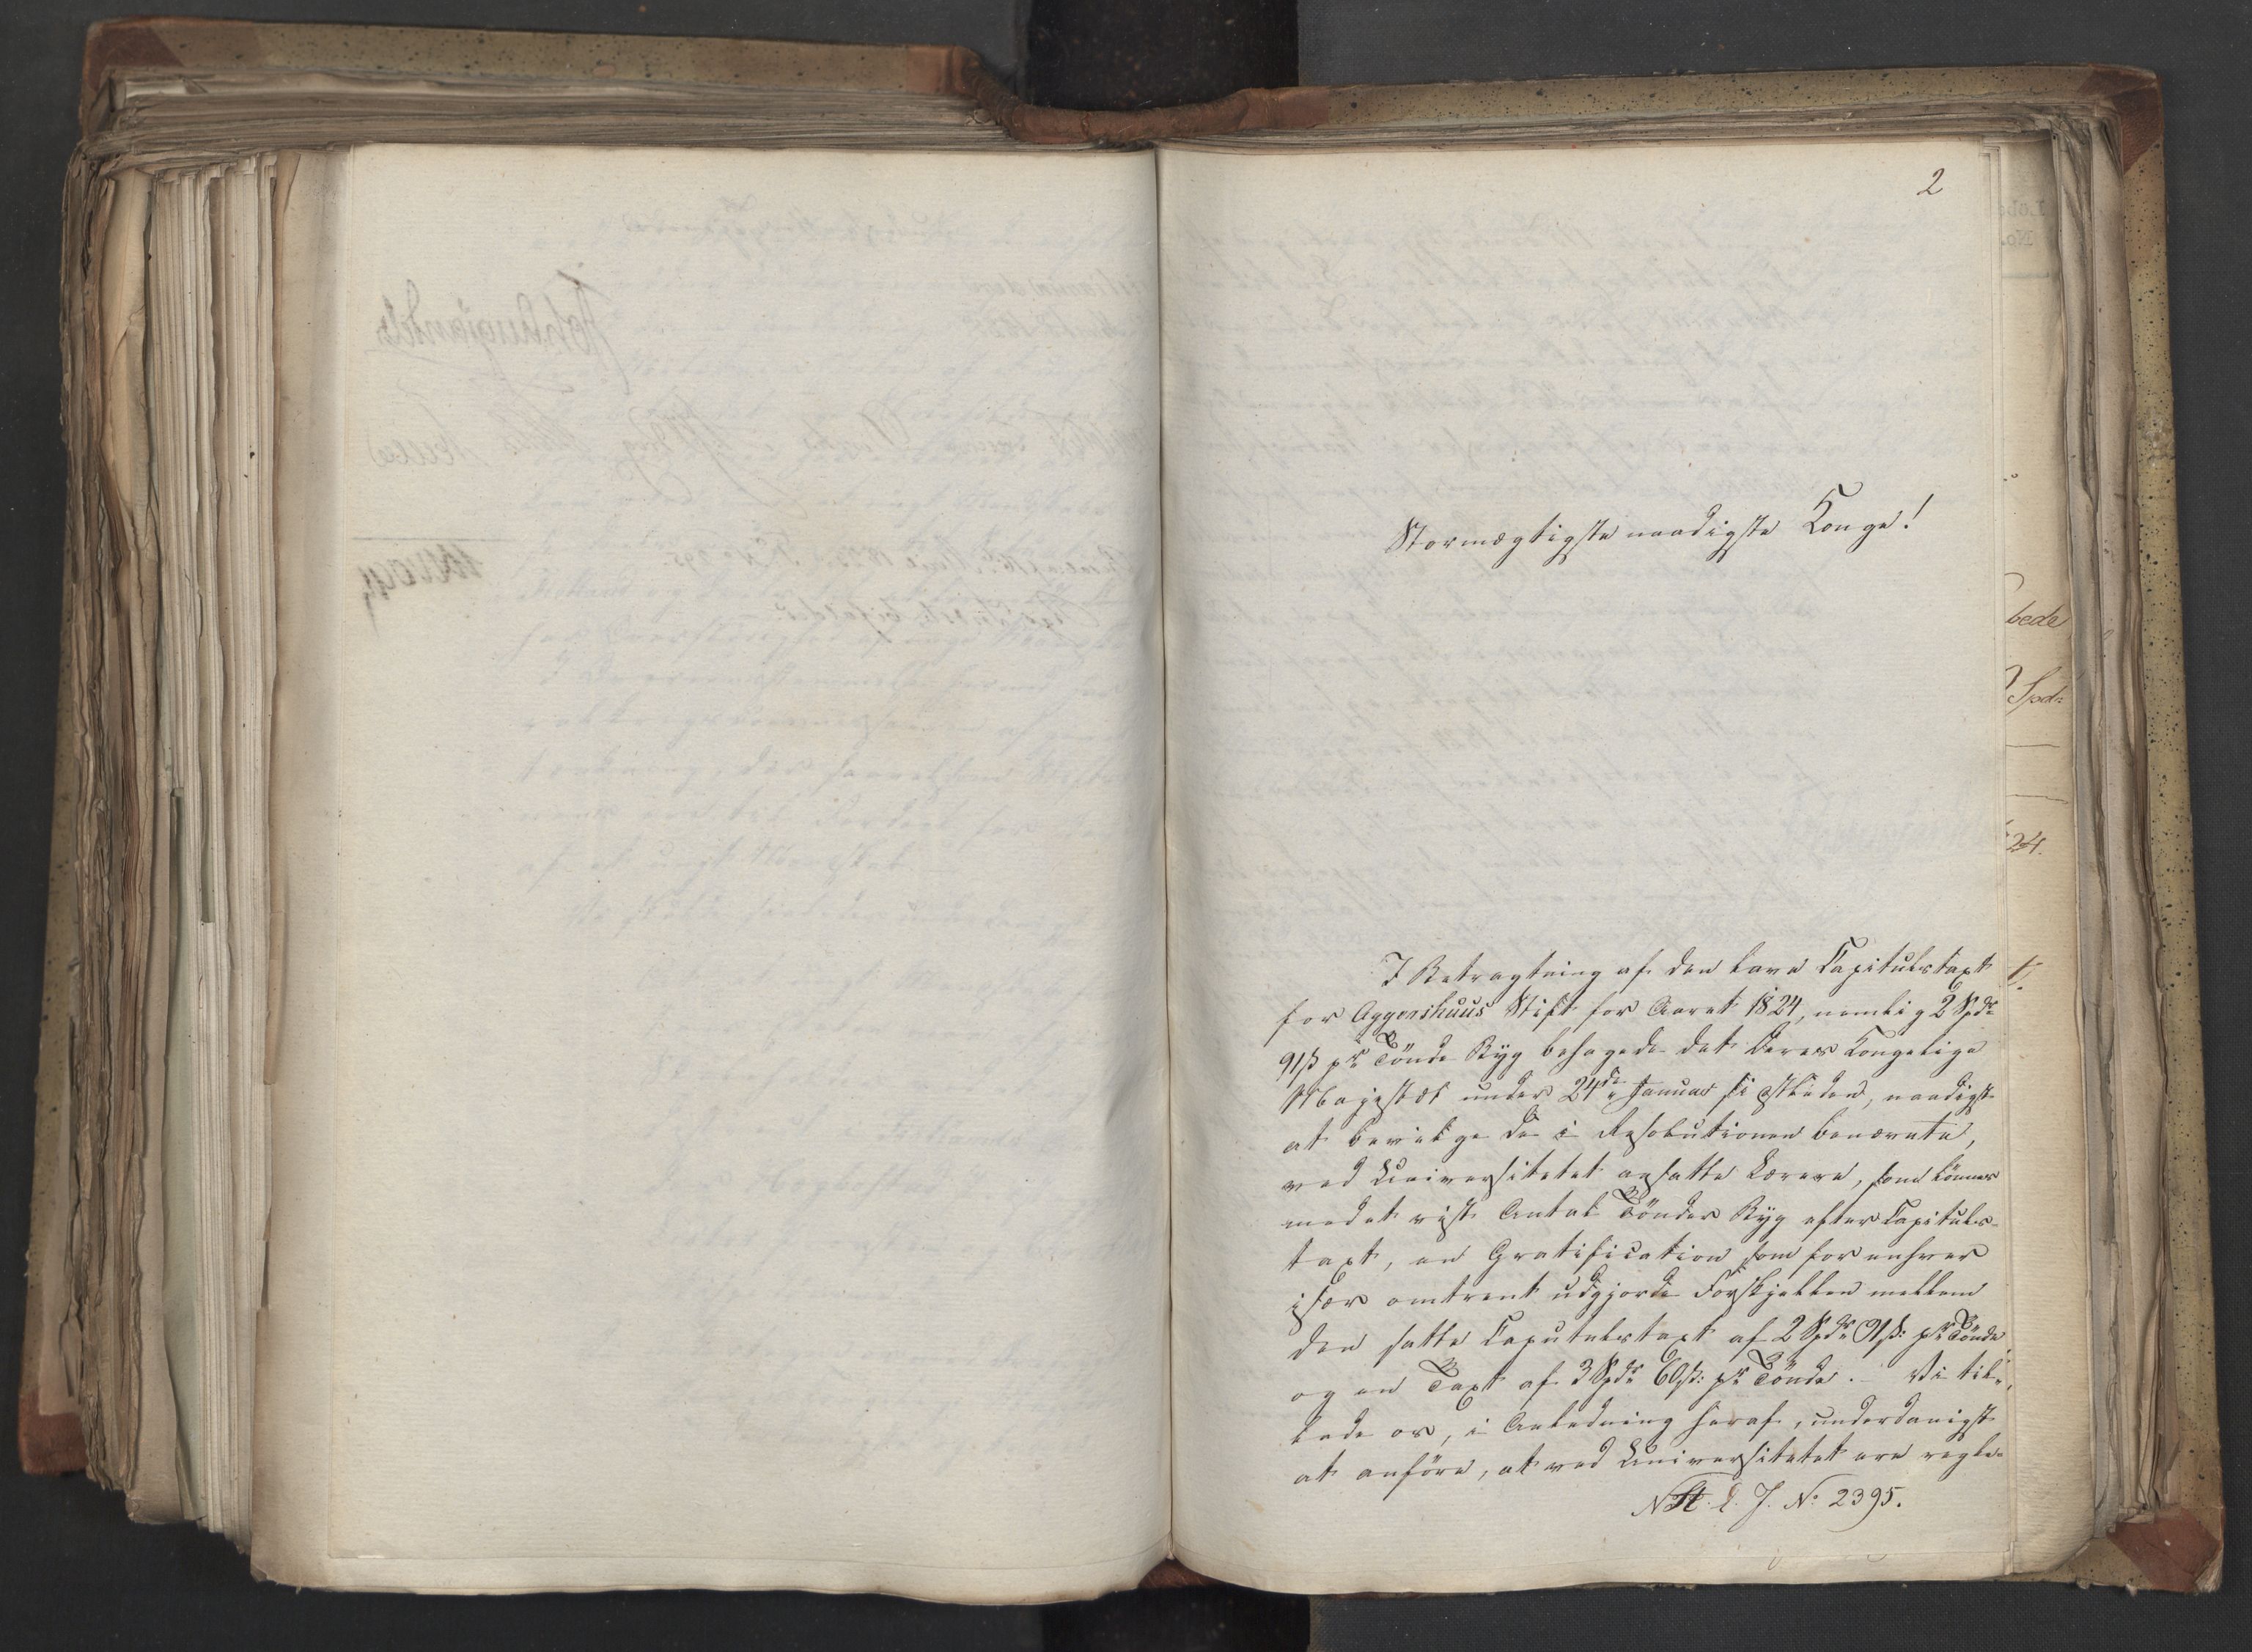 2
Stormægtigste naadigste Konge!
I Betragtning af den lave Capitulstaxt
for Aggershuus Stift for Aaret 1824, nemlig 2 Spdr
91 ß pr Tønde Byg behagede det Deres Kongelige
Majestæt under 24de Januar sidstleden, naadigst
at bevilge de i Resolutionen benævnte,
ved Universitetet ansatte Lærere, som lønnes
med et vist Antal Tønder Byg efter Capituls-
taxt, en Gratification som for enhver
især omtrent udgjorde Forskjellen mellem
den satte Capitulstaxt af 2 Spdr 91 ß: pr Tønde,
og en Taxt af 3 Spdr 60 ß: pr Tønde. – Vi til-
lade os, i Anledning heraf, underdanigst
at anføre, at ved Universitetet ere regle-
N St. C. J. No 2395.
bede
Spd:
24.